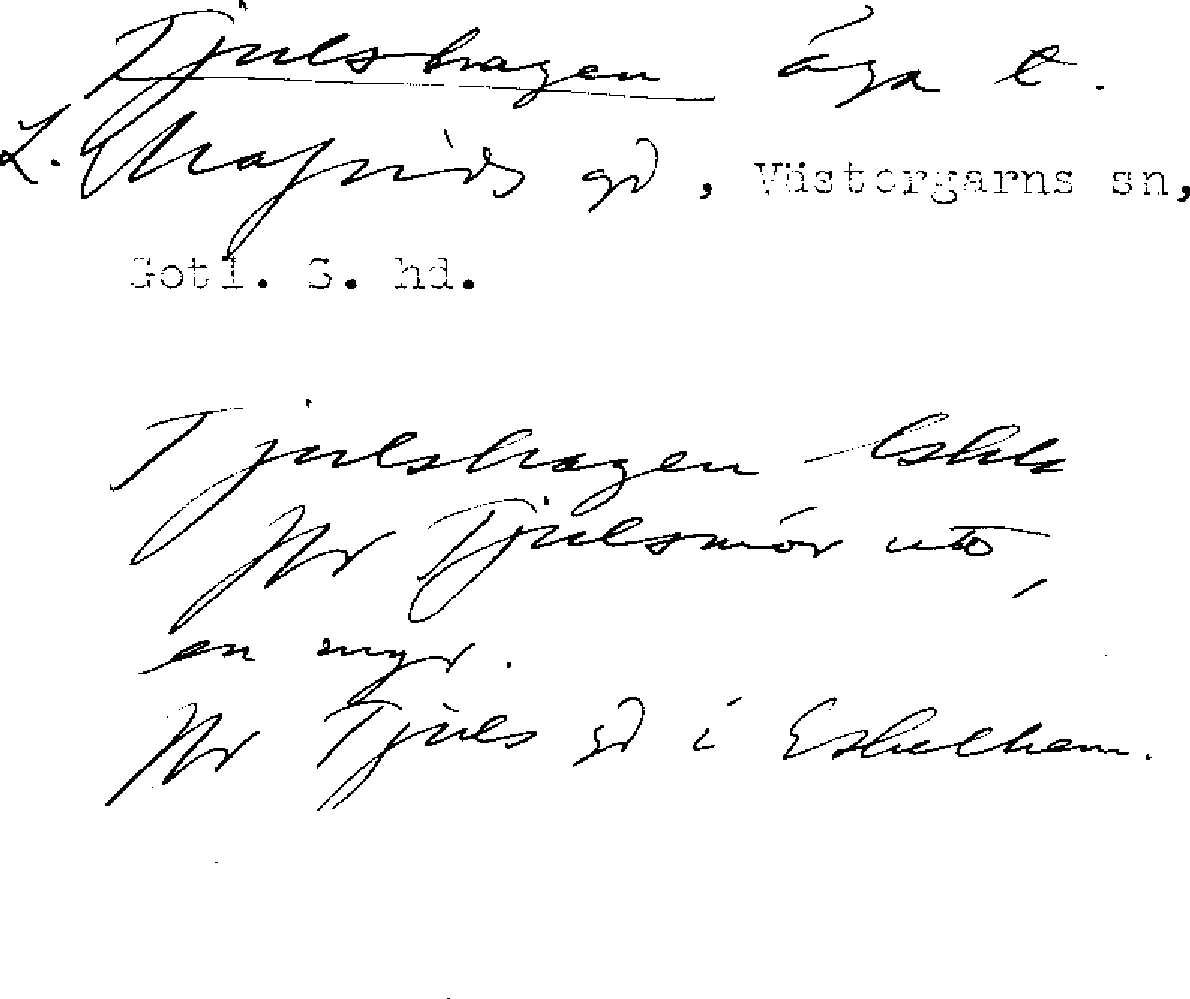 Tjulshagen äga t.
L. Mafrids gd, Västergarns sn,
Gotl. S. hd.
Tjulshagen
Jfr Tjulsmör
en myr.
Jfr Tjuls gd i Eskelhem.